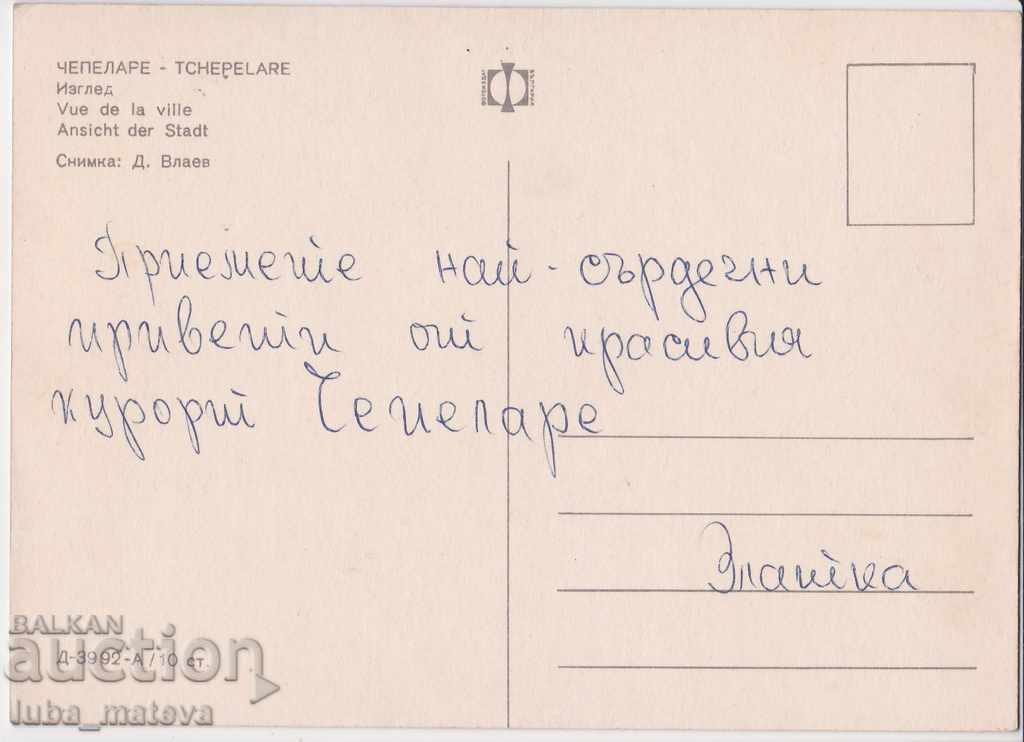 ЧЕПЕЛАРЕ - TCHEPELARE
Изглед
Vue de la ville
Ansicht der Stadt
Снимка: Д. Влаев
Приемете най-сърдечни
привети от красивия
курорт Чепеларе
Златка
Д-3992-А/10 ст.
BALKAN
auction
luba_mateva